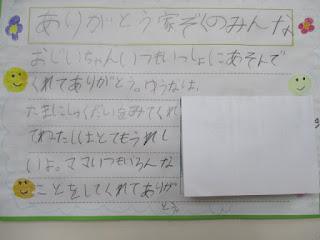 ありがとう家ぞくのみんな
おじいちゃんいつもいっしょにあそんで
くれてありがとう。ゆうなは、
たまにしゅくだいをみてくれ
てわたしはとてもうれし
いよ。ママいつもいろんな
ことをしてくれてありが
とう。